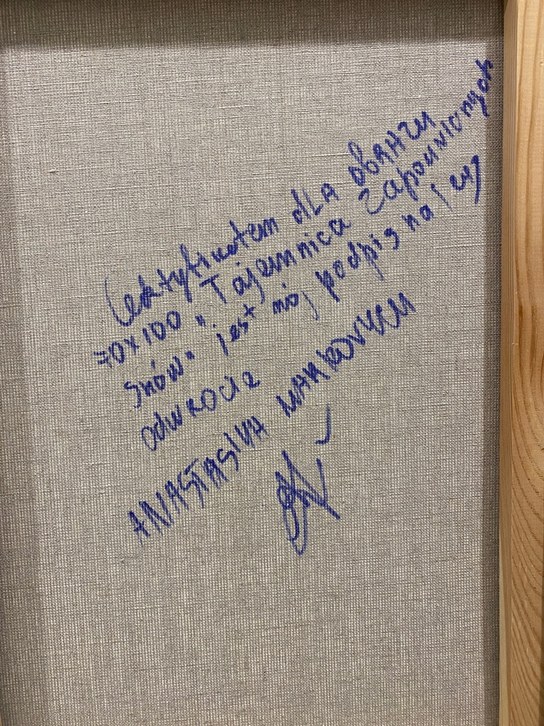 Certyfikatem dLA ObRAzu
70x100 „Tajemnica Zapomnianych
Snów" jest mój podpis na jego
odwrocie
ANASTASIYA MARKOVYCH